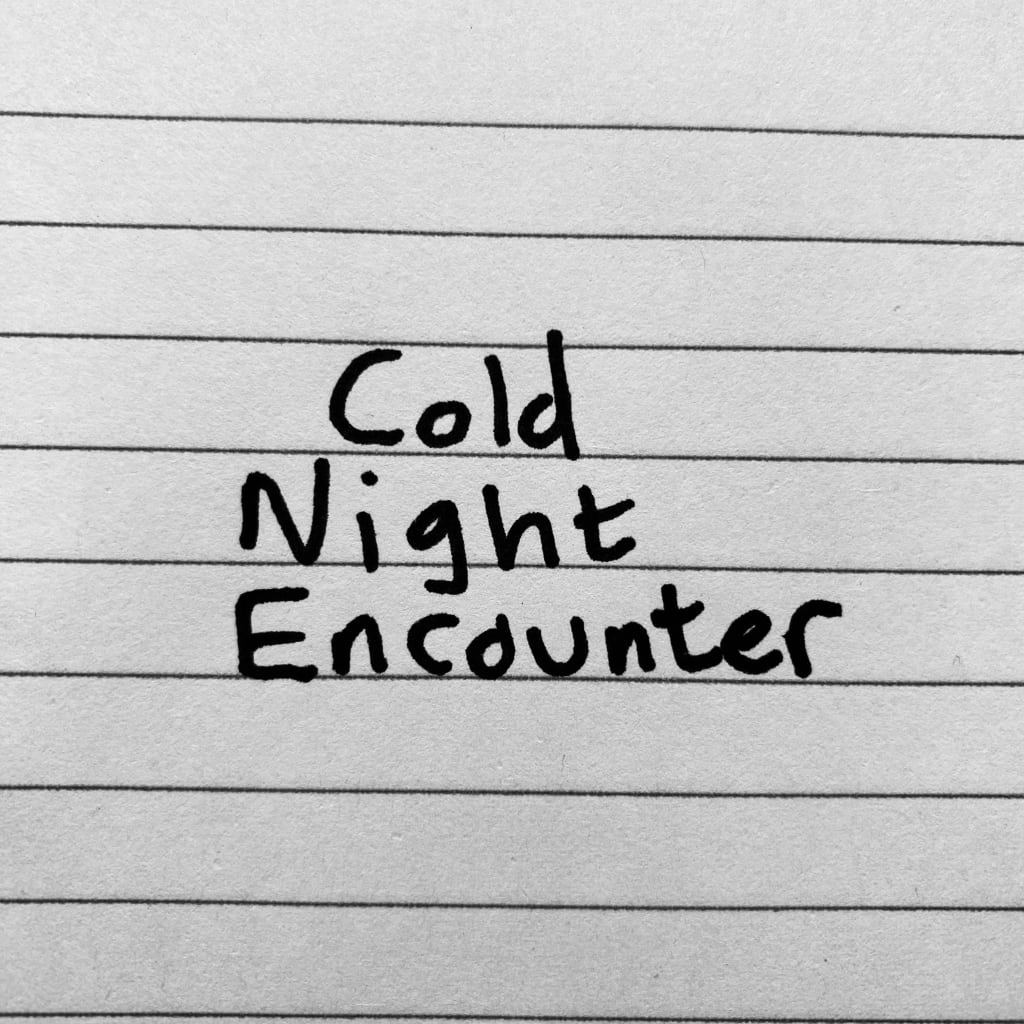 Cold
Night
Encounter